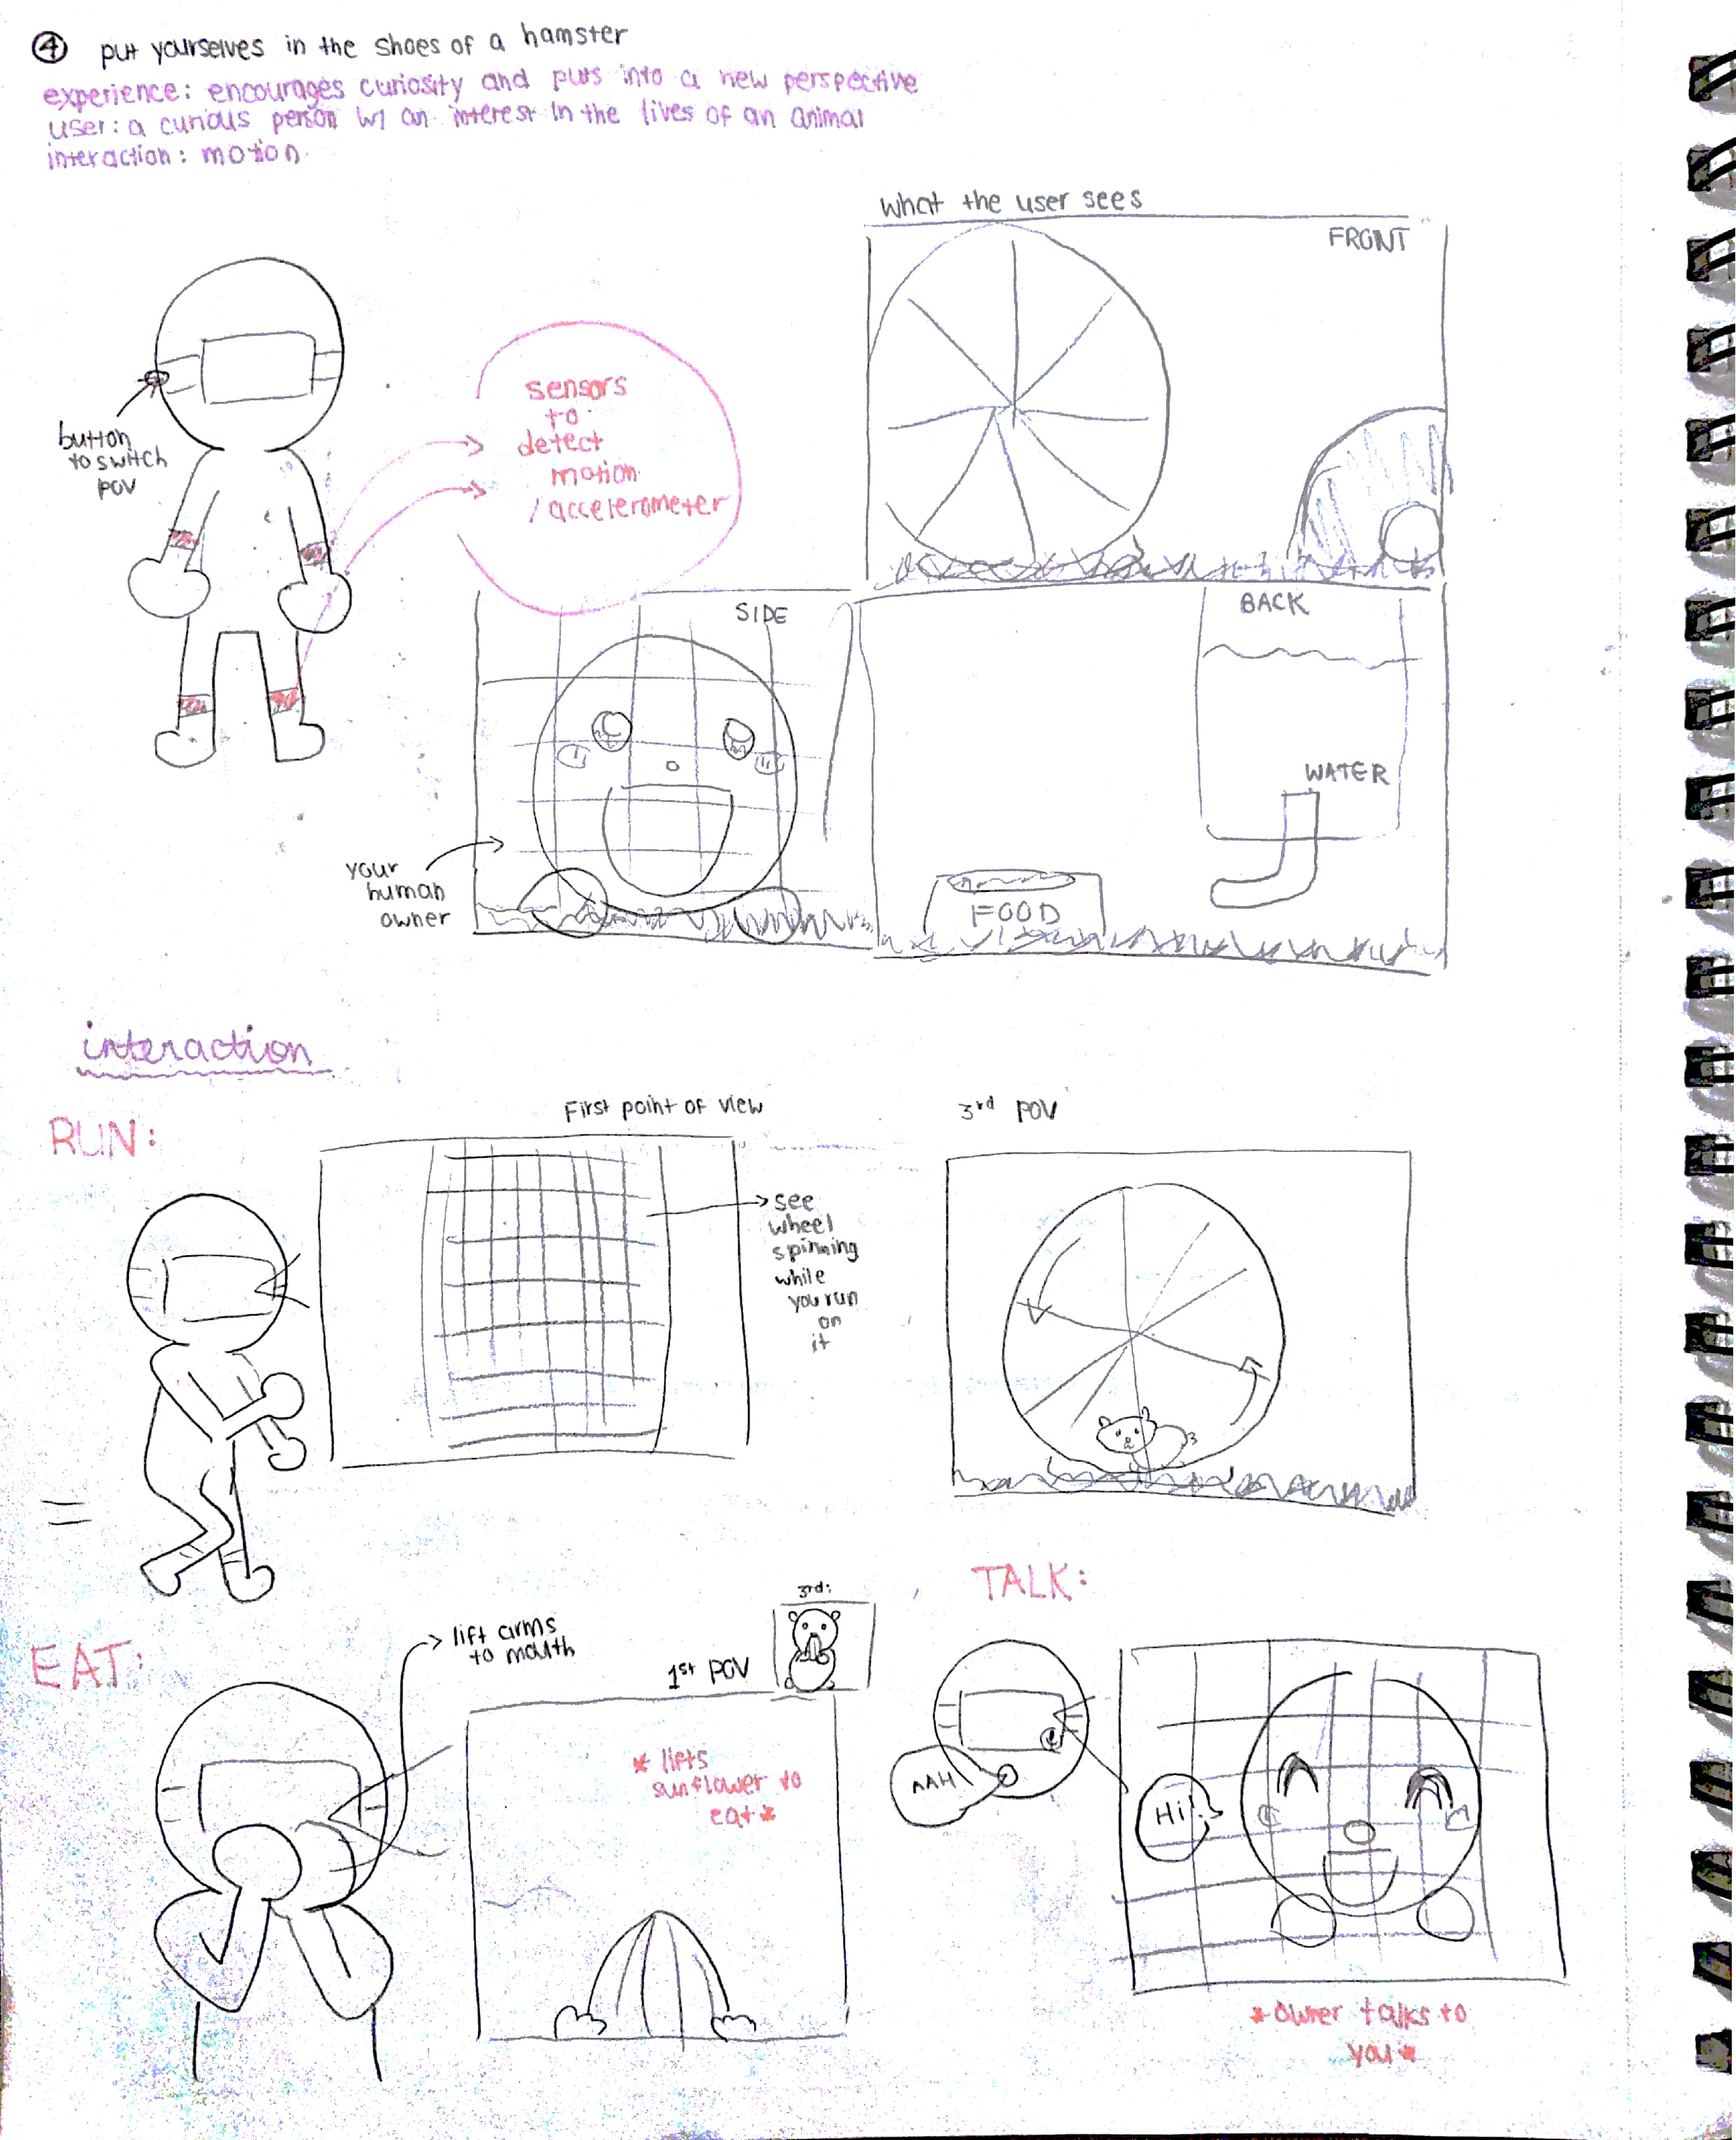 ④ put yourselves in the shoes of a hamster
experience: encourages curiosity and puts into a new perspective
user: a curious person w/ an interest in the lives of an animal
interaction: motion
what the user sees
FRONT
sensors
to
detect
motion
/accelerometer
button
to switch
POV
SIDE
BACK
WATER
FOOD
your
human
owner
interaction
RUN:
First point of view
3rd POV
see
wheel
spinning
while
you run
on
it
EAT:
lift arms
to mouth
1st POV
3rd:
* lifts
sunflower to
eat *
TALK:
AAH
Hi!
* owner talks to
you *